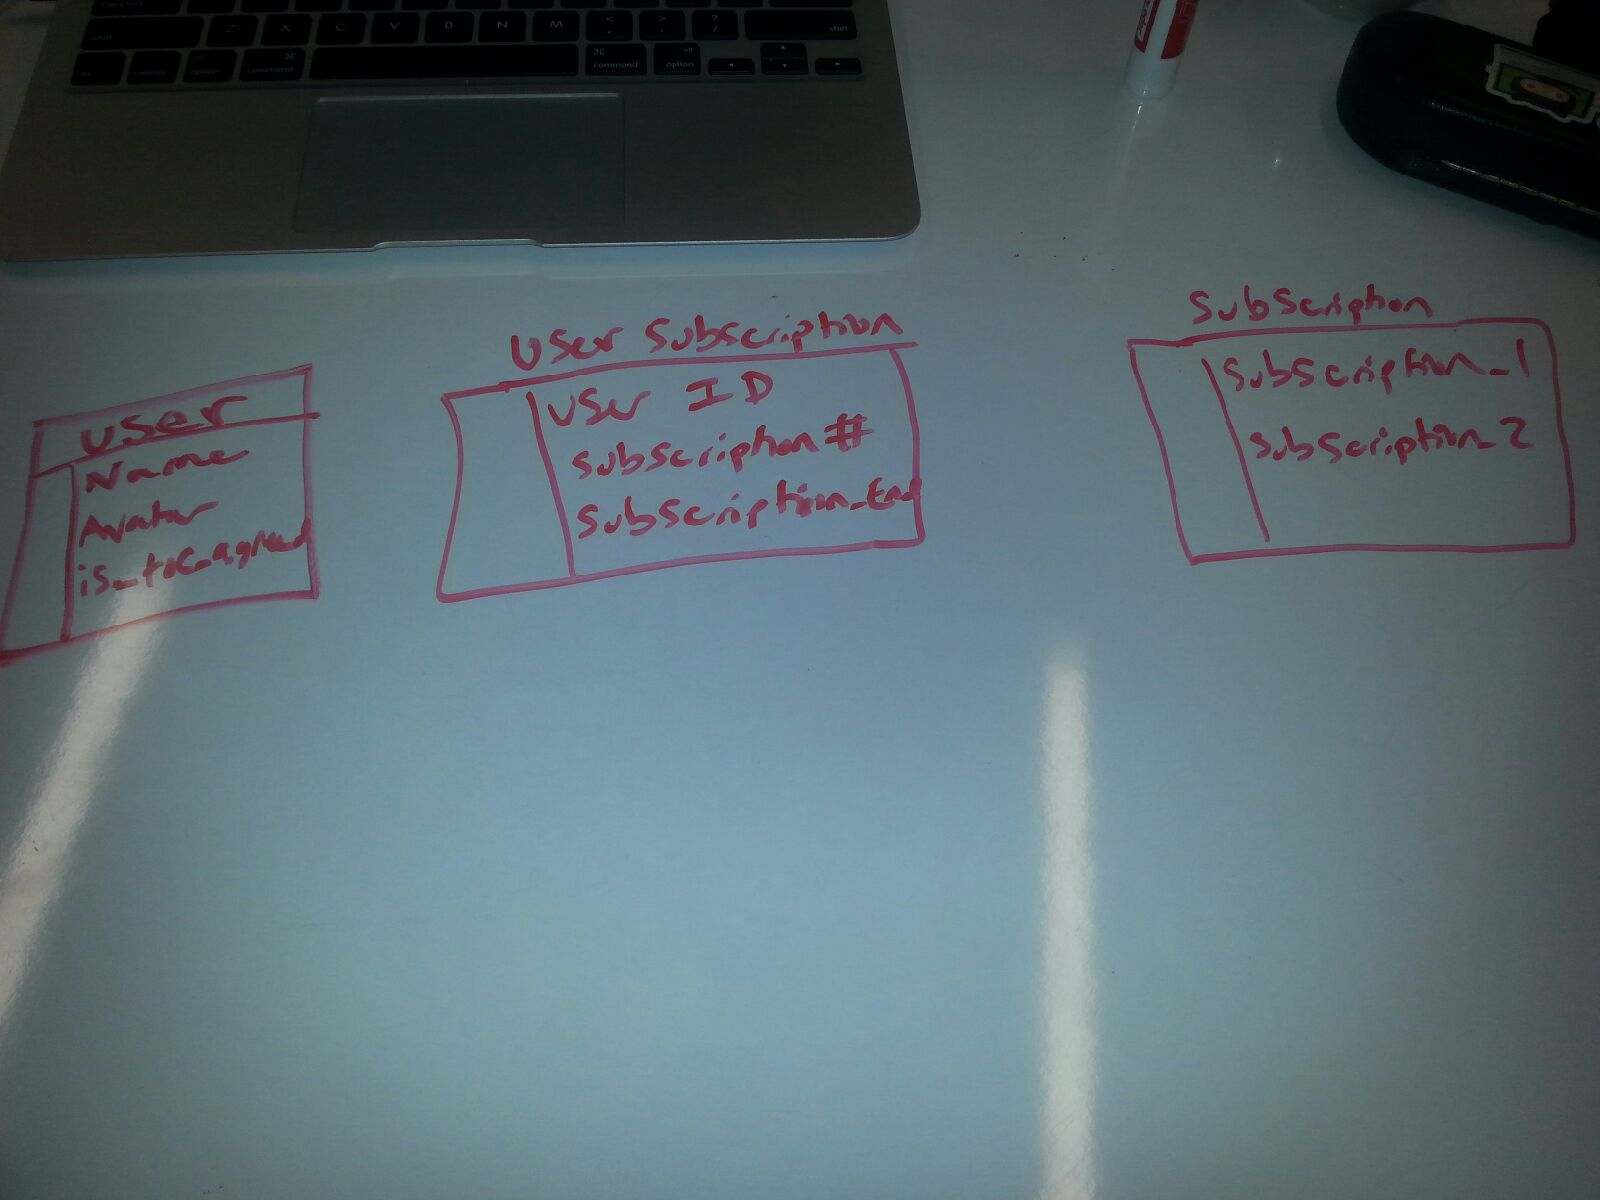 shift
Z X C V B N M < , > . ? / shift
control option command command alt option
User
Name
Avatar
is_toc_agreed
User Subscription
User ID
Subscription #
Subscription_End
Subscription
Subscription_1
Subscription_2